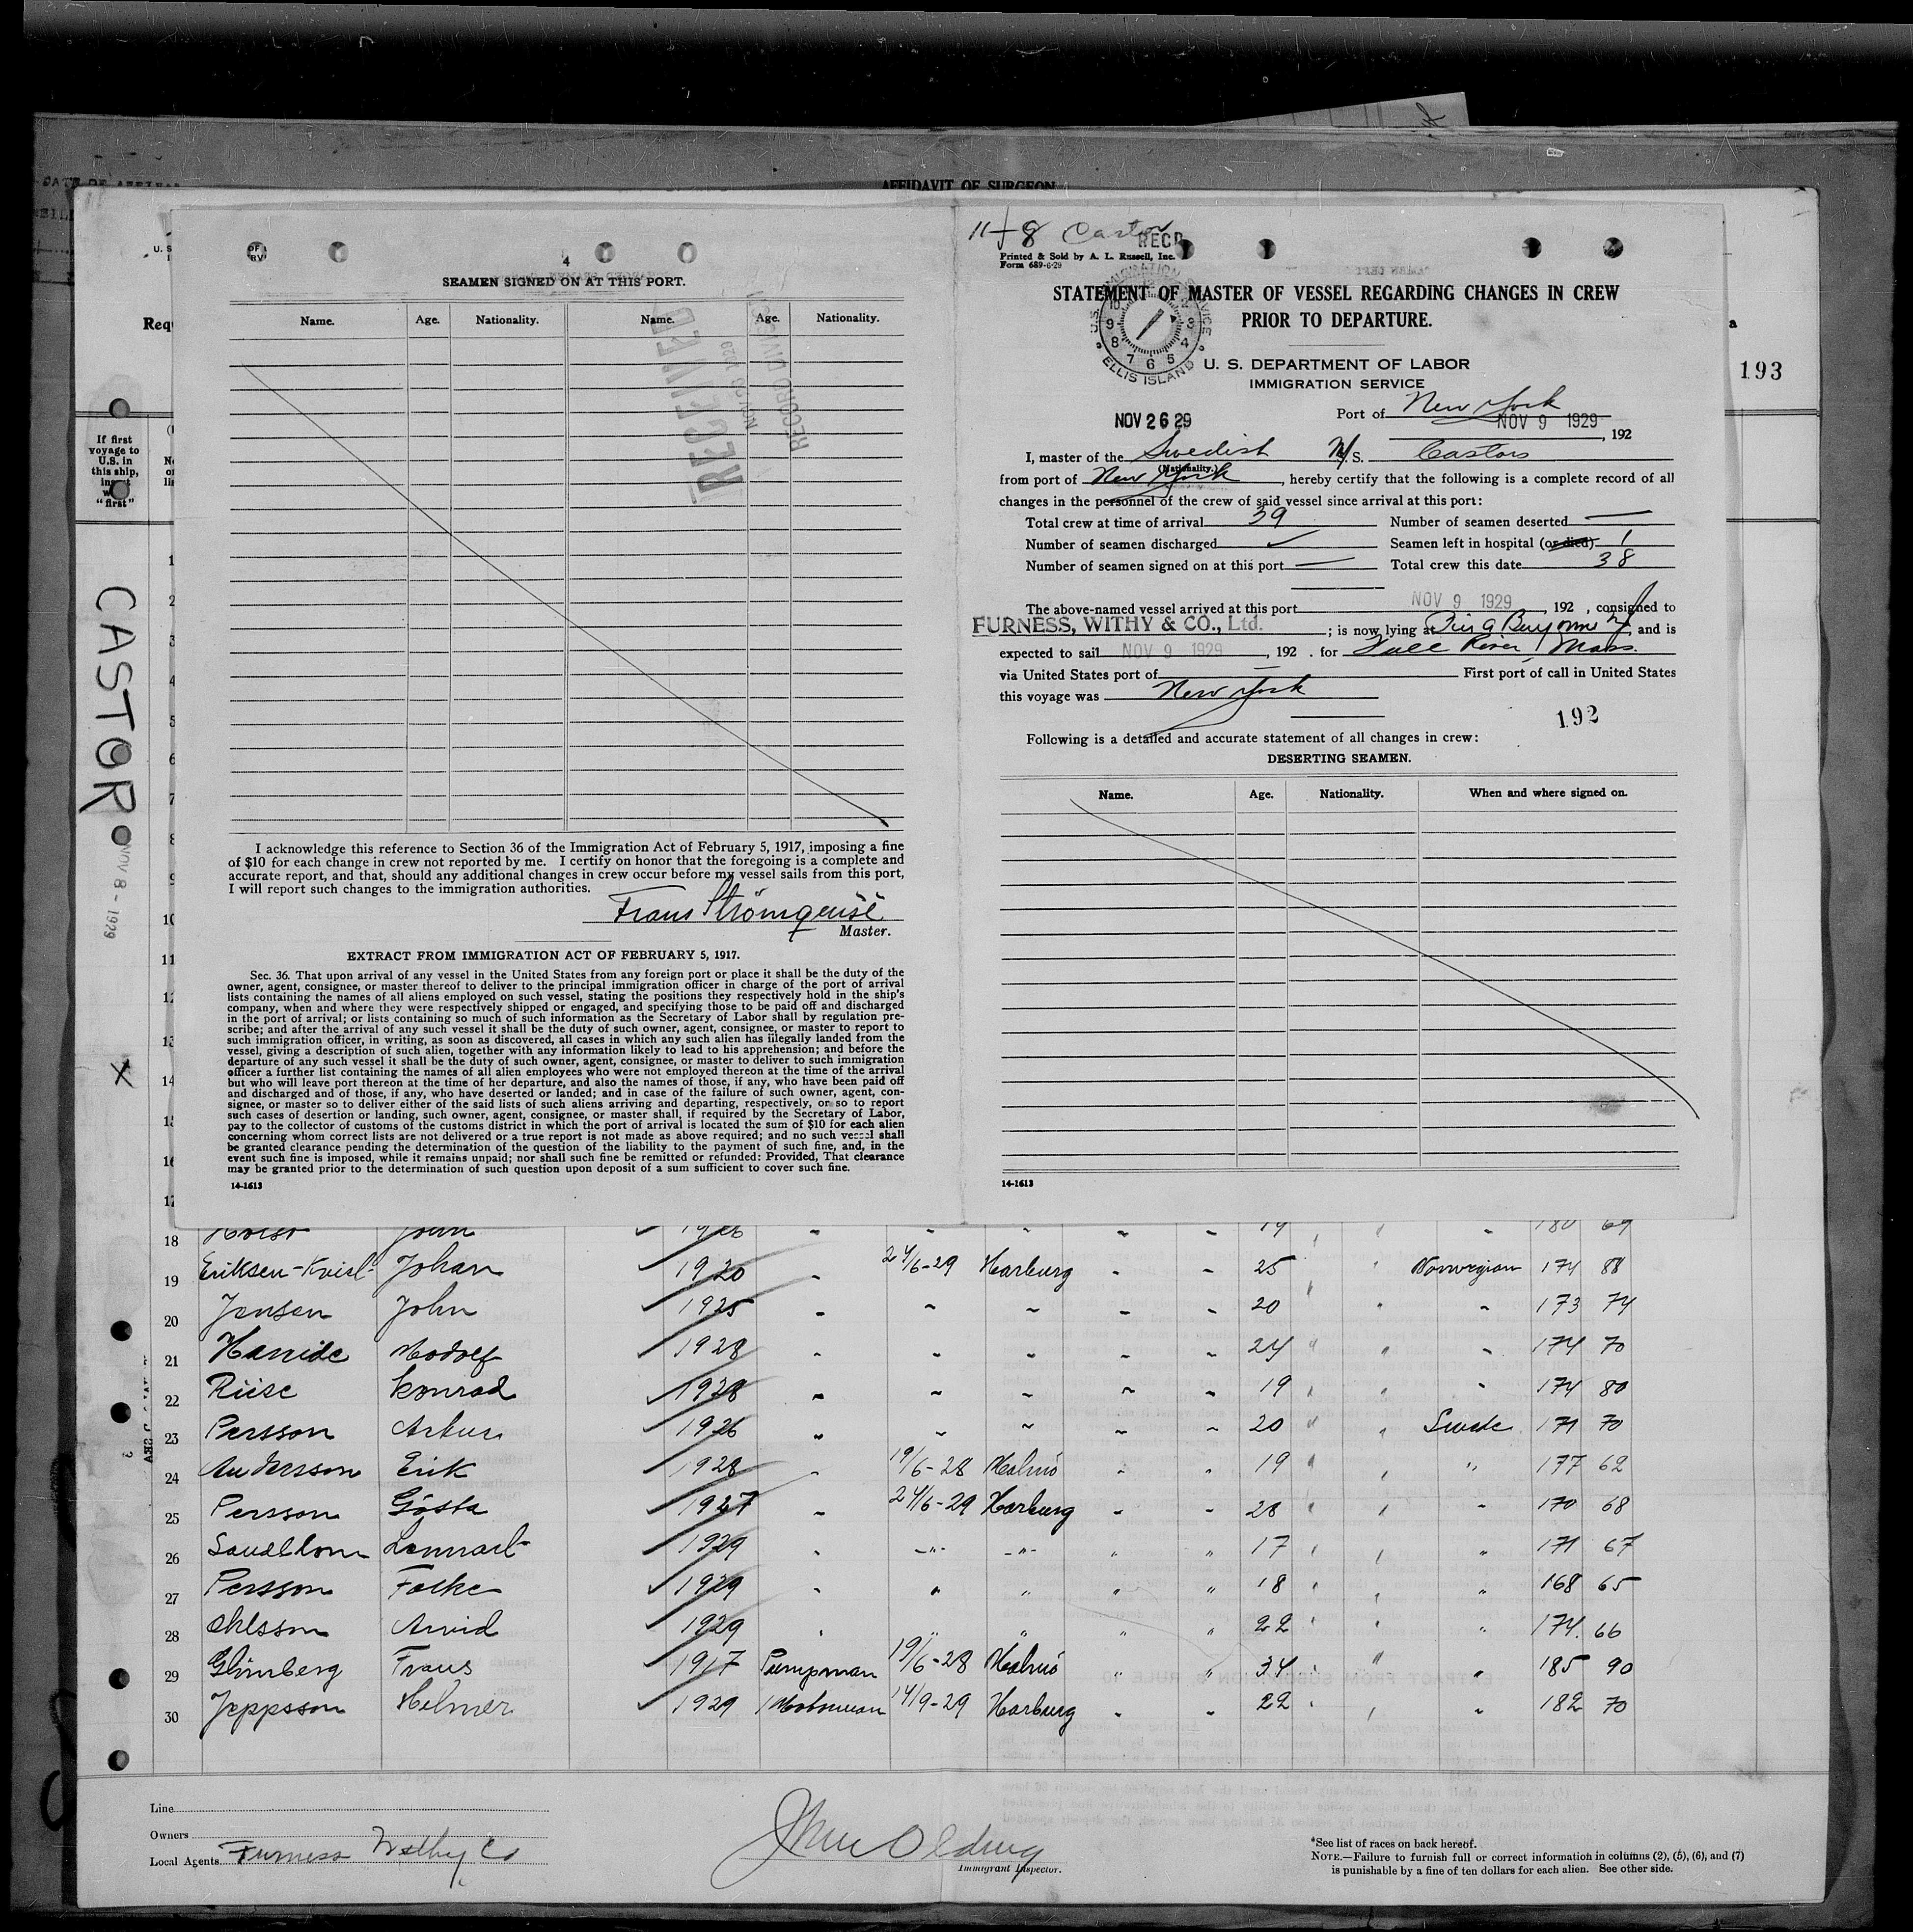 AFFIDAVIT OF SURGEON
4
SEAMEN SIGNED ON AT THIS PORT.
Name. Age. Nationality. Name. Age. Nationality.
RECEIVED
RECORD DIVISION
I acknowledge this reference to Section 36 of the Immigration Act of February 5, 1917, imposing a fine
of $10 for each change in crew not reported by me. I certify on honor that the foregoing is a complete and
accurate report, and that, should any additional changes in crew occur before my vessel sails from this port,
I will report such changes to the immigration authorities.
Frans Strömqvist
Master.
EXTRACT FROM IMMIGRATION ACT OF FEBRUARY 5, 1917.
Sec. 36. That upon arrival of any vessel in the United States from any foreign port or place it shall be the duty of the
owner, agent, consignee, or master thereof to deliver to the principal immigration officer in charge of the port of arrival
lists containing the names of all aliens employed on such vessel, stating the positions they respectively hold in the ship's
company, when and where they were respectively shipped or engaged, and specifying those to be paid off and discharged
in the port of arrival; or lists containing so much of such information as the Secretary of Labor shall by regulation pre-
scribe; and after the arrival of any such vessel it shall be the duty of such owner, agent, consignee, or master to report to
such immigration officer, in writing, as soon as discovered, all cases in which any such alien has illegally landed from the
vessel, giving a description of such alien, together with any information likely to lead to his apprehension; and before the
departure of any such vessel it shall be the duty of such owner, agent, consignee, or master to deliver to such immigration
officer a further list containing the names of all alien employees who were not employed thereon at the time of the arrival
but who will leave port thereon at the time of her departure, and also the names of those, if any, who have been paid off
and discharged and of those, if any, who have deserted or landed; and in case of the failure of such owner, agent, con-
signee, or master so to deliver either of the said lists of such aliens arriving and departing, respectively, or so to report
such cases of desertion or landing, such owner, agent, consignee, or master shall, if required by the Secretary of Labor,
pay to the collector of customs of the customs district in which the port of arrival is located the sum of $10 for each alien
concerning whom correct lists are not delivered or a true report is not made as above required; and no such vessel shall
be granted clearance pending the determination of the question of the liability to the payment of such fine, and, in the
event such fine is imposed, while it remains unpaid; nor shall such fine be remitted or refunded: Provided, That clearance
may be granted prior to the determination of such question upon deposit of a sum sufficient to cover such fine.
14-1613
11-8 Castor
RECD
Printed & Sold by A. L. Russell, Inc.
Form 689-6-29
STATEMENT OF MASTER OF VESSEL REGARDING CHANGES IN CREW
PRIOR TO DEPARTURE.
U. S. DEPARTMENT OF LABOR
IMMIGRATION SERVICE
ELLIS ISLAND
NOV 26 29
Port of New York
NOV 9 1929, 192
I, master of the Swedish M/S. Castor
(Nationality.)
from port of New York, hereby certify that the following is a complete record of all
changes in the personnel of the crew of said vessel since arrival at this port:
Total crew at time of arrival 39 Number of seamen deserted —
Number of seamen discharged Seamen left in hospital (or died) 1
Number of seamen signed on at this port — Total crew this date 38
The above-named vessel arrived at this port NOV 9 1929, 192 , consigned to
FURNESS, WITHY & CO., Ltd. ; is now lying at Bayonne NJ, and is
expected to sail NOV 9 1929, 192 . for Fall River, Mass.
via United States port of — First port of call in United States
this voyage was New York
192
Following is a detailed and accurate statement of all changes in crew:
DESERTING SEAMEN.
Name. Age. Nationality. When and where signed on.
14-1613
193
If first
voyage to
U.S. in
this ship,
insert
"first"
CASTOR
NOV 8 - 1929
X
1
2
3
4
5
6
7
8
9
10
11
12
13
14
15
16
17
18 John 1926 " " " " " 19 " " " 180 69
19 Eriksen-Kvisl Johan 1920 " 24/6-29 Harburg " " 25 " Norwegian 174 88
20 Jensen John 1925 " " " " " 20 " " " 173 74
21 1928 " " " " " 24 " " " 174 70
22 Riise Konrad 1928 " " " " " 19 " " " 174 80
23 Persson Artur 1926 " " " " " 20 " " Swede 171 70
24 Andersson Erik 1928 " 19/6-28 Malmö " " 19 " " " 177 62
25 Persson Gösta 1927 " 24/6-29 Harburg " " 28 " " " 170 68
26 Sandblom Lennart 1929 " -"- -"- " " 17 " " " 171 67
27 Persson Folke 1929 " " " " " 18 " " " 168 65
28 Ohlsson Arvid 1929 " " " " " 22 " " " 174. 66
29 Glimberg Frans 1917 Pumpman 19/6-28 Malmö " " 34 " " " 185 90
30 Jeppsson Helmer 1929 Motorman 14/9-29 Harburg " " 22 " " " 182 70
Line
Owners
Local Agents Furness Withy Co
Immigrant Inspector.
*See list of races on back hereof.
NOTE.—Failure to furnish full or correct information in columns (2), (5), (6), and (7)
is punishable by a fine of ten dollars for each alien. See other side.